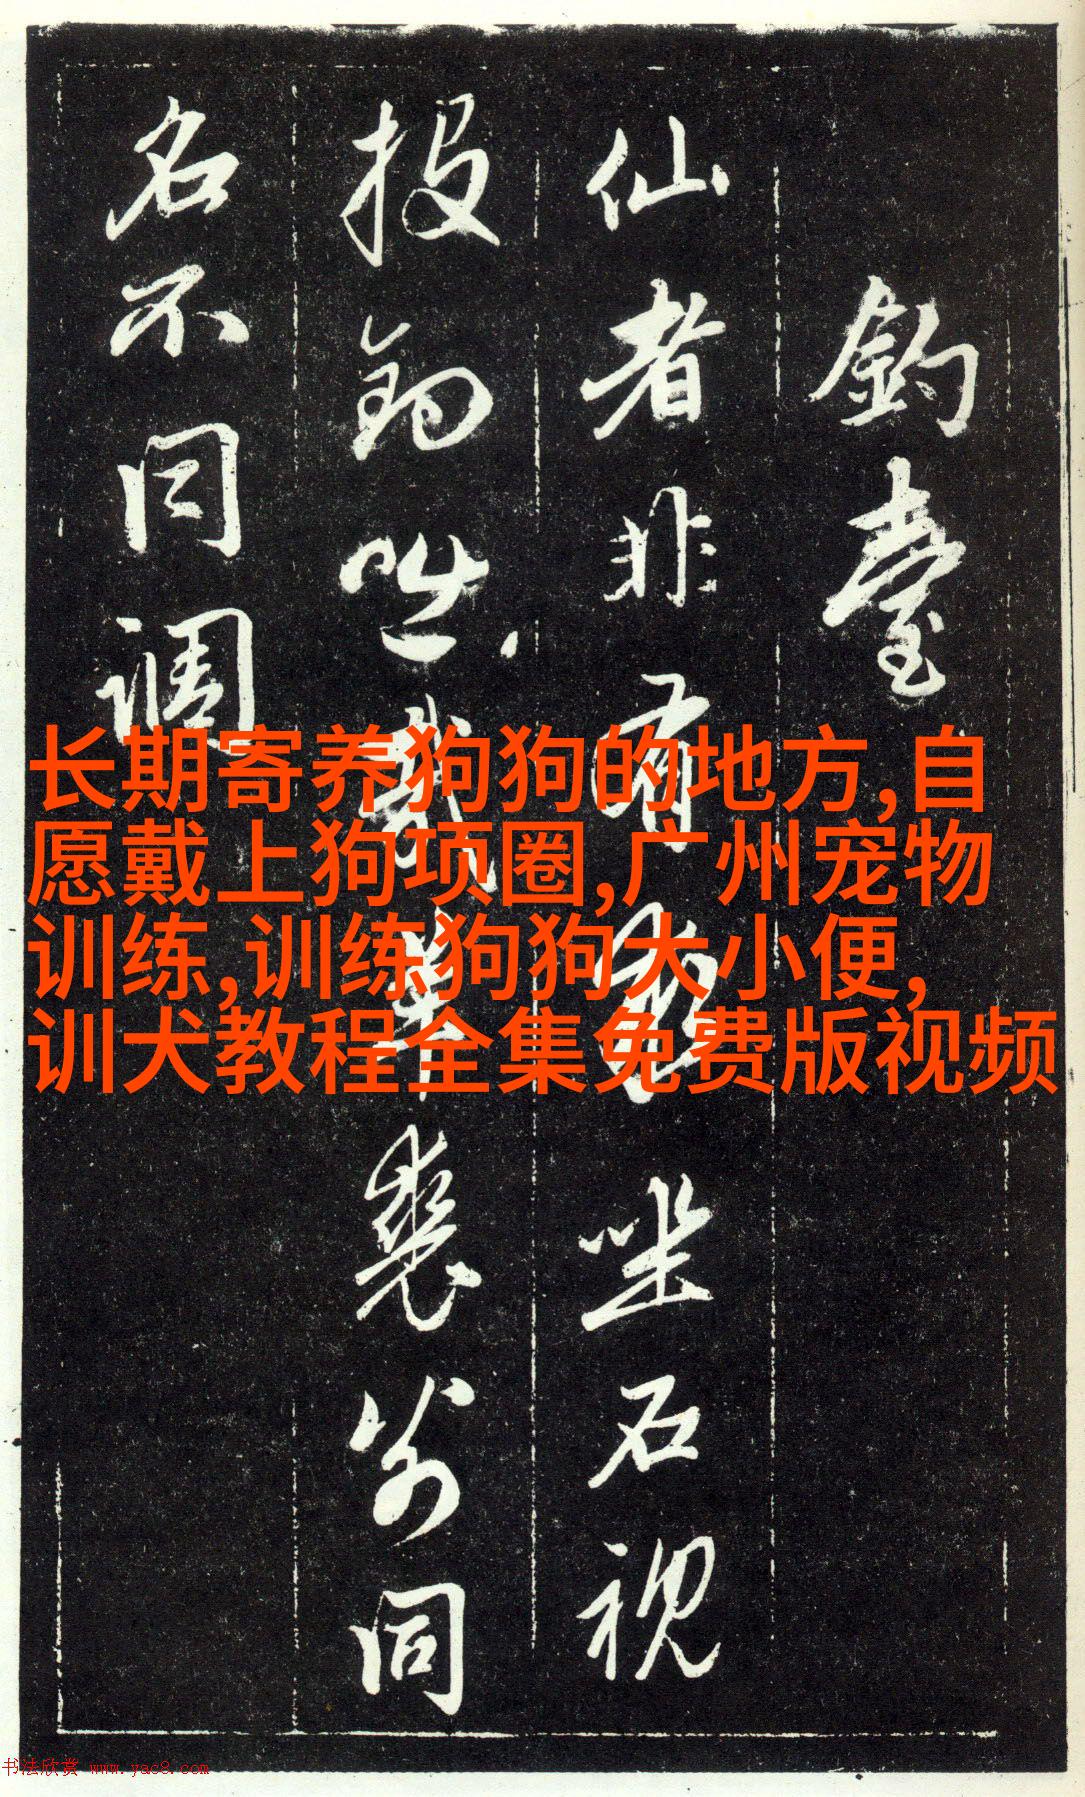 釣臺
仙者非有坐石視
投鈎咄哉羊裘同
名不同調
长期寄养狗狗的地方,自
愿戴上狗项圈,广州宠物
训练,训练狗狗大小便,
训犬教程全集免费版视频
书法欣赏 www.yac8.com